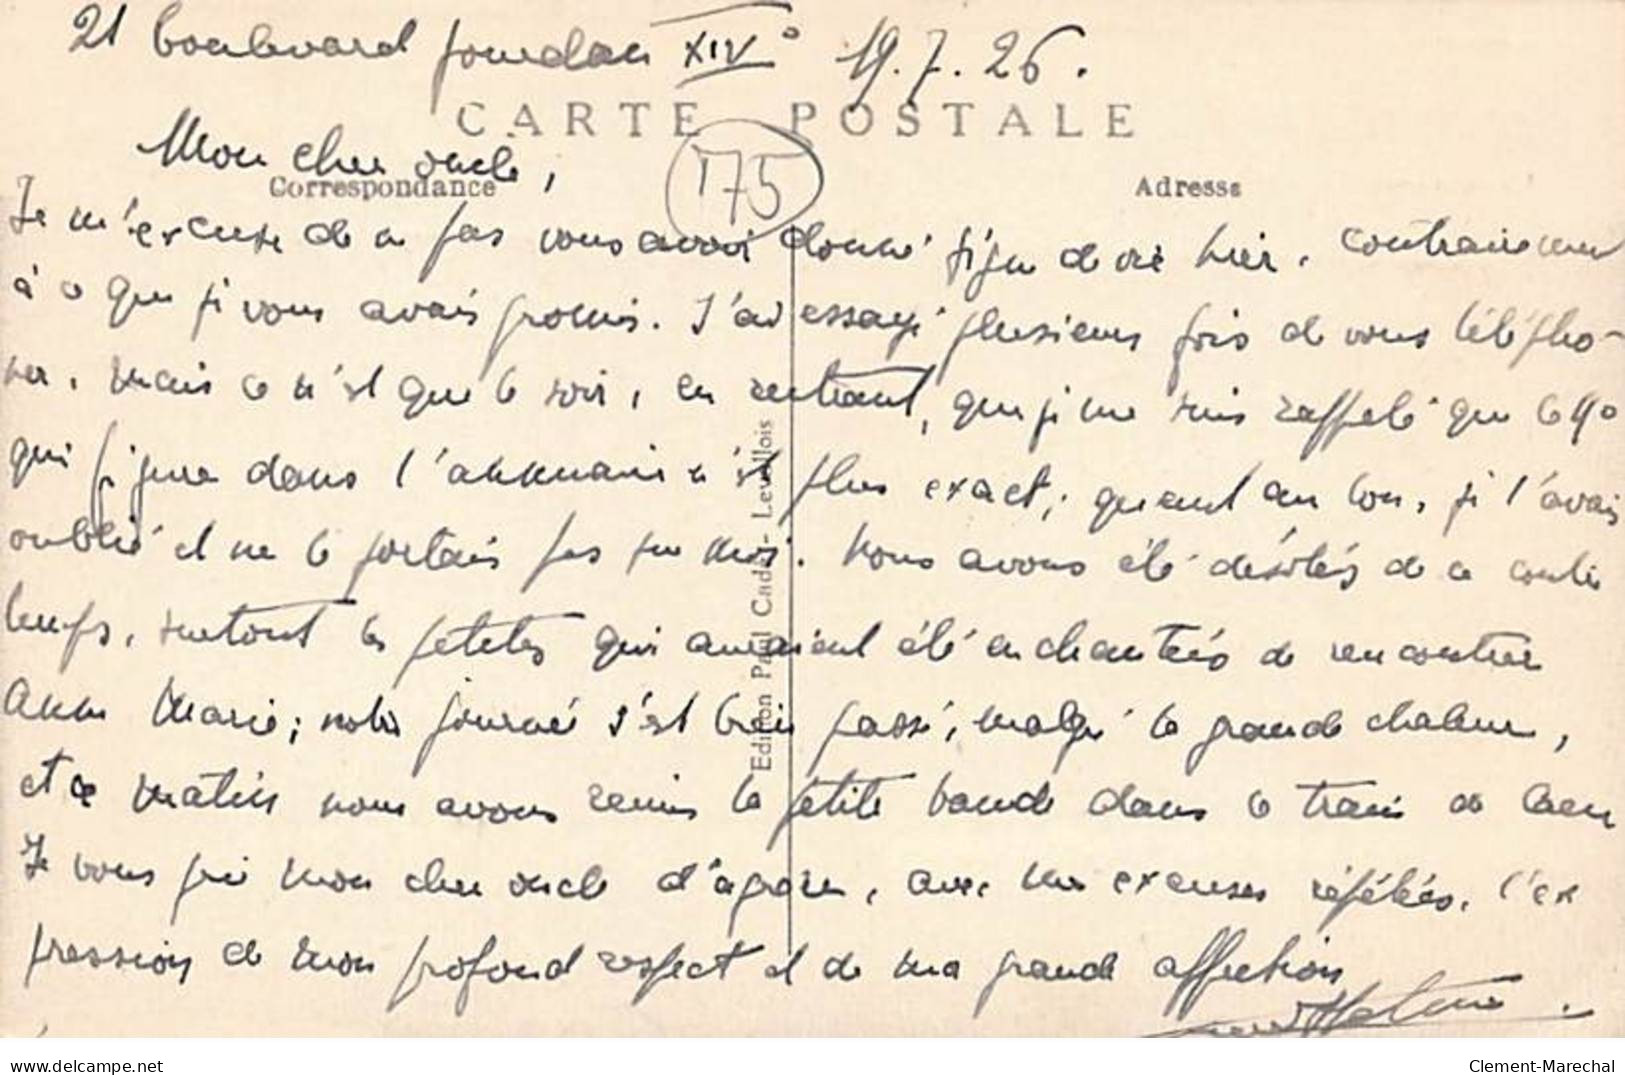 21 boulevard Jourdan XIVe 19.7.26.
CARTE POSTALE
Mon cher oncle,
175
Correspondance
Adresse
Je m'excuse de ne pas vous avoir donné signe de vie hier, contrairement
à ce que je vous avais promis. J'ai essayé plusieurs fois de vous télépho-
ner, mais ce n'est que le soir, en rentrant, que je me suis rappelé que le no
qui figure dans l'annuaire n'est plus exact; quant au bon, je l'avais
oublié et ne le portais pas sur moi. Nous avons été désolés de ce contre
temps, surtout les petites qui auraient été enchantées de rencontrer
Anne Marie; notre journée s'est bien passé, malgré la grande chaleur,
et ce matin nous avons remis la petite bande dans le train de Caen
Je vous prie mon cher oncle d'agréer, avec mes excuses répétées, l'ex
pression de mon profond respect et de ma grande affection
Edition Paul Cade - Levallois
www.delcampe.net
Clement-Marechal